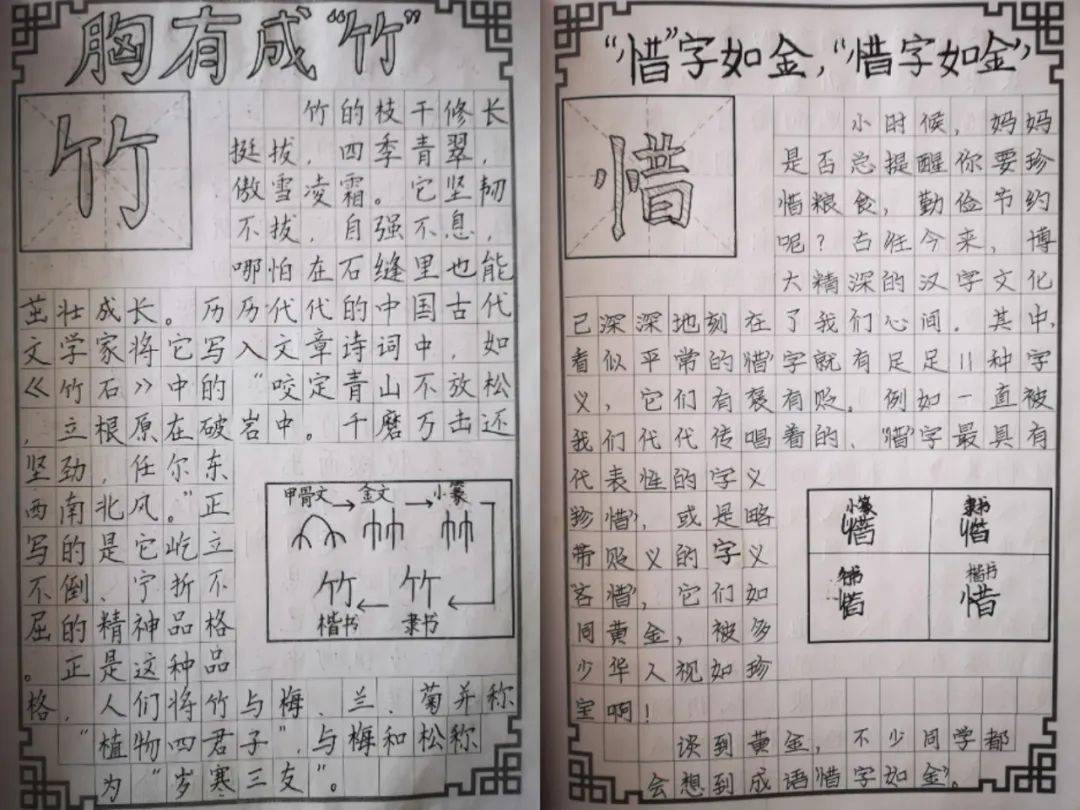 胸有成“竹”
竹
竹的枝干修长
挺拔，四季青翠，
傲雪凌霜。它坚韧
不拔，自强不息，
哪怕在石缝里也能
茁壮成长。历历代代的中国古代
文学家将它写入文章诗词中，如
《竹石》中的“咬定青山不放松
，立根原在破岩中。千磨万击还
坚劲，任尔东
西南北风。”正
写的是它屹立
不倒、宁折不
屈的精神品格
。正是这种品
格，人们将竹与梅、兰、菊并称
“植物四君子”，与梅和松称
为“岁寒三友”。
甲骨文→金文→小篆
竹 竹
楷书 隶书
“惜”字如金，“惜字如金”
惜
小时候，妈妈
是否总提醒你要珍
惜粮食，勤俭节约
呢？古往今来，博
大精深的汉字文化
已深深地刻在了我们心间。其中，
看似平常的“惜”字就有足足11种字
义，它们有褒有贬。例如一直被
我们代代传唱着的、“惜”字最具有
代表性的字义
“珍惜”，或是略
带贬义的字义
“吝惜”，它们如
同黄金，被多
少华人视如珍
宝啊！
谈到黄金，不少同学都
会想到成语“惜字如金”。
小篆 隶书
惜 惜
楷书
惜 惜